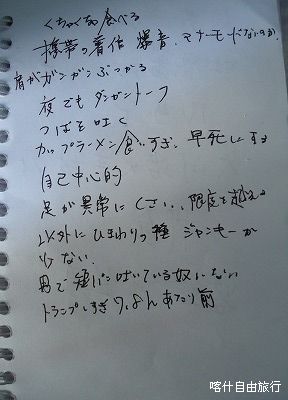 くちゃくちゃ食べる
携帯の着信 爆音、マナーモードないのか
肩がガンガンぶつかる
夜でもダンガントーク
つばを吐く
カップラーメン食いすぎ、早死にする
自己中心的
足が異常にくさい、限度を越え
以外にひまわりの種 ジャンキーが
少ない
男で短パンはいている奴いない
トランプしすぎ 7,8人あたり前
喀什自由旅行